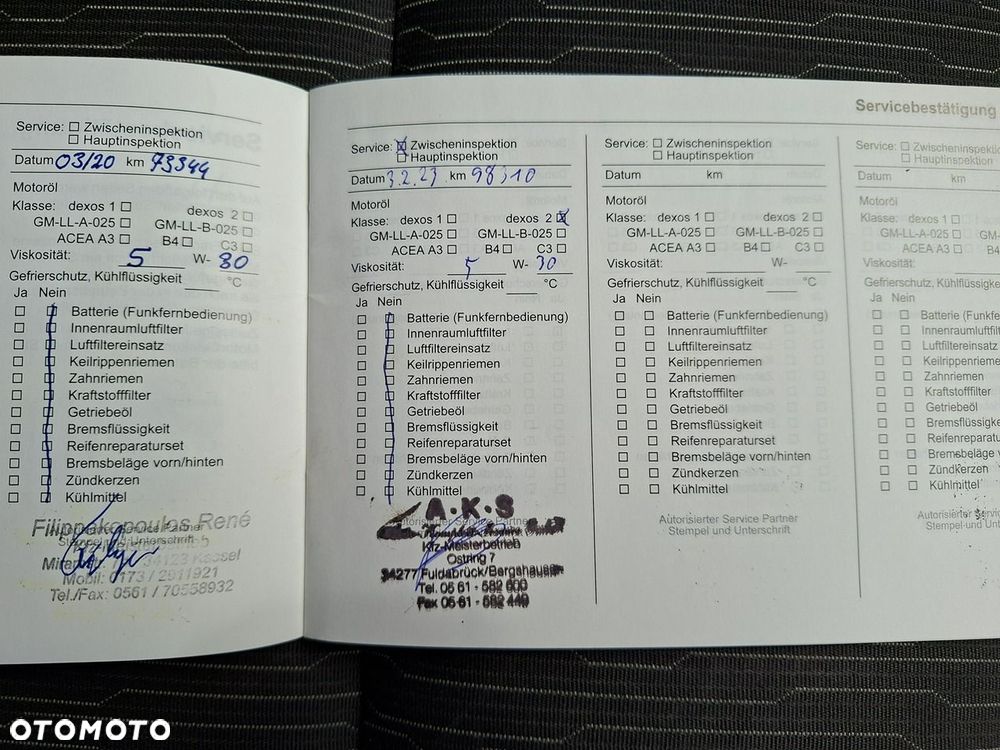 Servicebestätigung
Service: Zwischeninspektion
Hauptinspektion
Datum 03/20 km 73344
Motoröl
Klasse: dexos 1 dexos 2
GM-LL-A-025 GM-LL-B-025
ACEA A3 B4 C3
Viskosität: 5 W- 30
Gefrierschutz, Kühlflüssigkeit °C
Ja Nein
Batterie (Funkfernbedienung)
Innenraumluftfilter
Luftfiltereinsatz
Keilrippenriemen
Zahnriemen
Kraftstofffilter
Getriebeöl
Bremsflüssigkeit
Reifenreparaturset
Bremsbeläge vorn/hinten
Zündkerzen
Kühlmittel
Filippakopoulos René
34123 Kassel
Mobil: 0173 / 2911921
Tel./Fax: 0561 / 70558932
Service: Zwischeninspektion
Hauptinspektion
Datum 3.2.23 km 98310
Motoröl
Klasse: dexos 1 dexos 2
GM-LL-A-025 GM-LL-B-025
ACEA A3 B4 C3
Viskosität: 5 W- 30
Gefrierschutz, Kühlflüssigkeit °C
Ja Nein
Batterie (Funkfernbedienung)
Innenraumluftfilter
Luftfiltereinsatz
Keilrippenriemen
Zahnriemen
Kraftstofffilter
Getriebeöl
Bremsflüssigkeit
Reifenreparaturset
Bremsbeläge vorn/hinten
Zündkerzen
Kühlmittel
A·K·S
Autorisierter Service Partner
Kfz-Meisterbetrieb
Ostring 7
34277 Fuldabrück/Bergshausen
Tel. 05 61 - 582 600
Fax 05 61 - 582 440
Service: Zwischeninspektion
Hauptinspektion
Datum km
Motoröl
Klasse: dexos 1 dexos 2
GM-LL-A-025 GM-LL-B-025
ACEA A3 B4 C3
Viskosität: W-
Gefrierschutz, Kühlflüssigkeit °C
Ja Nein
Batterie (Funkfernbedienung)
Innenraumluftfilter
Luftfiltereinsatz
Keilrippenriemen
Zahnriemen
Kraftstofffilter
Getriebeöl
Bremsflüssigkeit
Reifenreparaturset
Bremsbeläge vorn/hinten
Zündkerzen
Kühlmittel
Autorisierter Service Partner
Stempel und Unterschrift
Service: Zwischeninspektio
Hauptinspektion
Datum km
Motoröl
Klasse: dexos 1 de
GM-LL-A-025 GM-L
ACEA A3 B4
Viskosität:
Gefrierschutz, Kühlflüssigke
Ja Nein
Batterie (Funkfern
Innenraumluftfilter
Luftfiltereinsatz
Keilrippenriemen
Zahnriemen
Kraftstofffilter
Getriebeöl
Bremsflüssigke
Reifenreparatu
Bremsbeläge vo
Zündkerzen
Kühlmittel
Autorisierter Service Pa
Stempel und Untersc
OTOMOTO